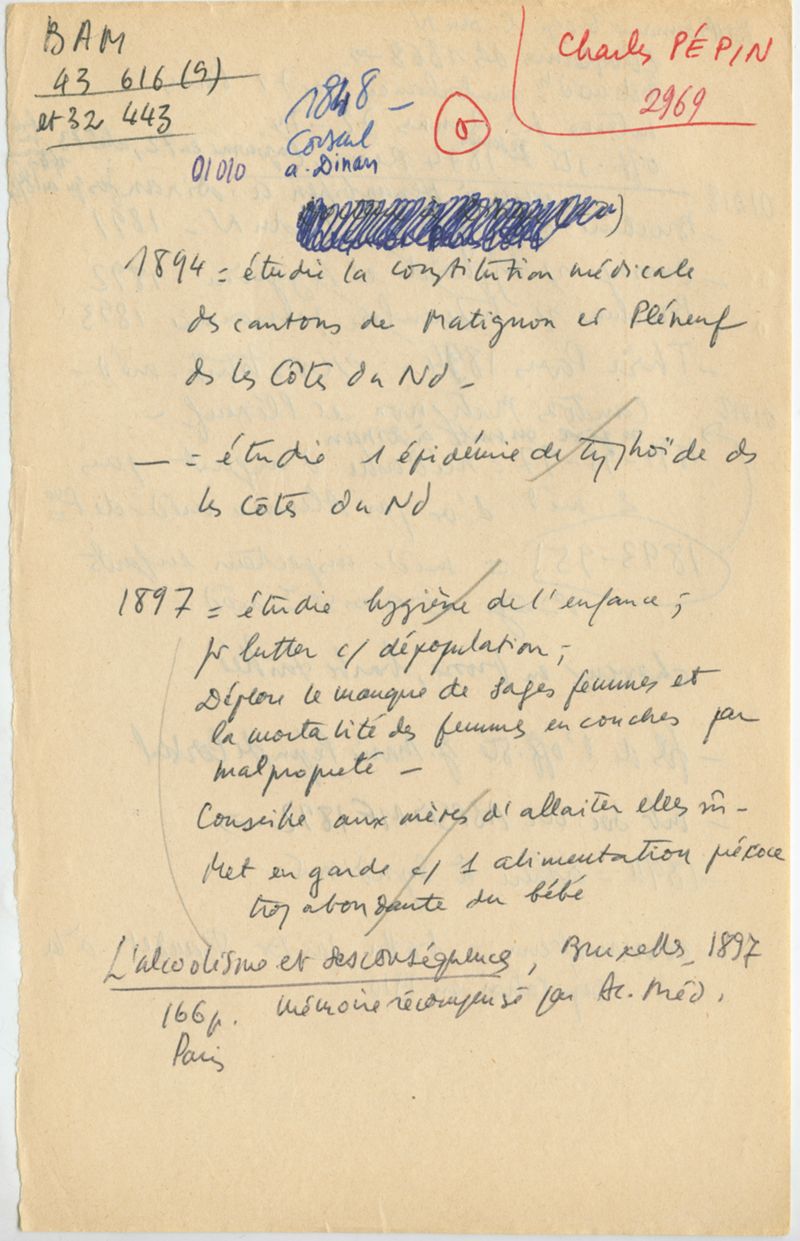 BAM
43 616 (9)
et 32 443
Charles PÉPIN
2969
1848 -
Corseul
a. Dinan
01010
σ
1894 = étudie la constitution médicale
des cantons de Matignon et Pléneuf
ds les Côtes du Nd -
— = étudie 1 épidémie de typhoïde ds
les Côtes du Nd
1897 = étudie hygiène de l'enfance ;
pr lutter c/ dépopulation ;
Déplore le manque de sages femmes et
la mortalité des femmes en couches par
malpropreté -
Conseille aux mères d'allaiter elles m̂ -
Met en garde c/ 1 alimentation précoce
trop abondante du bébé
L'alcoolisme et ses conséquences, Bruxelles, 1897
166 p. Mémoire récompensé par Ac. Méd.
Paris